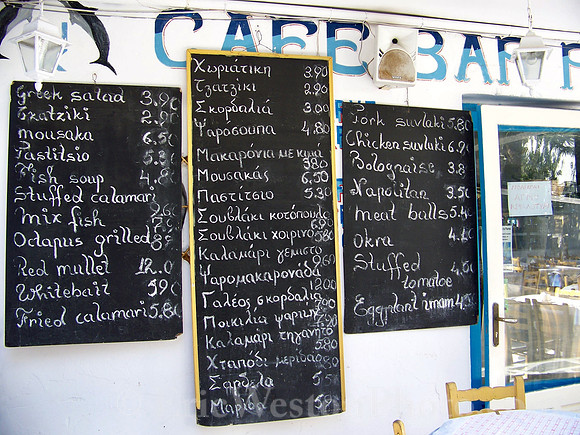 CAFE BAR
Greek salad 3.90
Tzatziki
mousaka 6.50
Pastitsio 5.30
Fish soup 4.8
Stuffed calamari
Mix fish
Octapus grilled
Red mullet 12.0
Whitebait 5.90
Fried calamari 5.80
Χωριάτικη 3.90
Τζατζίκι 2.90
Σκορδαλιά 3.00
Ψαρόσουπα 4.80
Μακαρόνια με κιμά
3.80
Μουσακάς 6.50
Παστίτσιο 5.30
Σουβλάκι κοτόπουλο
6.90
Σουβλάκι χοιρινό
5.80
Καλαμάρι γεμιστό
9.60
Ψαρομακαρονάδα
12.00
Γαλέος σκορδαλιά
Ποικιλία ψαριών
Καλαμάρι τηγανητό
5.80
Χταπόδι μερίδα
Σαρδέλα 5.50
Μαρίδα
Pork suvlaki 5.80
Chicken suvlaki 6.9
Bolognaise 3.8
Napolitan 3.50
meat balls 5.40
Okra
Stuffed
tomatoe
Eggplant imam